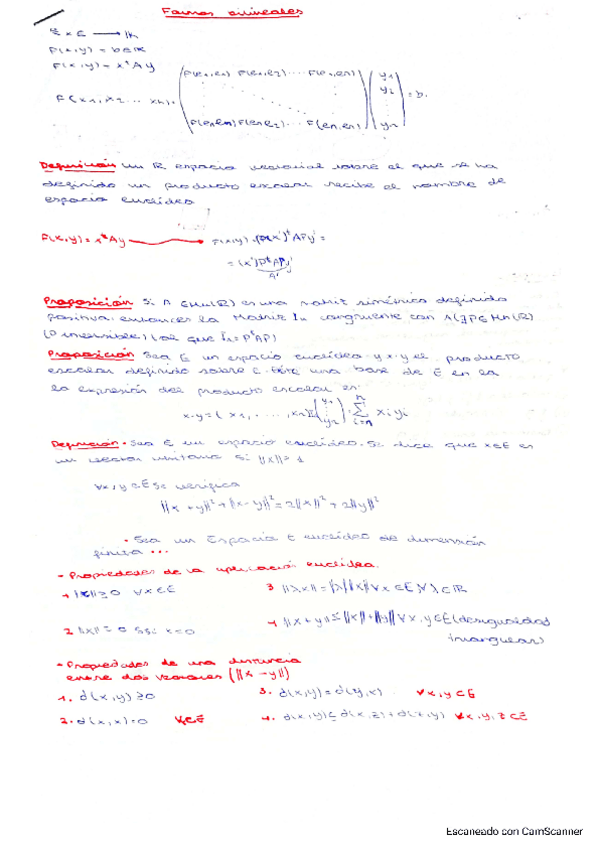 Formas bilineales
E x E → IK
F(x,y) = b ∈ IK
F(x,y) = x^t A y
F(x1, x2 ... xn) · (F(e1,e1) F(e1,e2) ... F(e1,en) ... F(en,e1) F(en,e2) ... F(en,en)) (y1 y2 ⋮ yn) = b.
Definición un R. espacio vectorial sobre el que se ha
definido un producto escalar recibe el nombre de
espacio euclídeo
F(x,y) = x^t A y → F(x,y) = (P(x')^t A P y' =
= (x') P^t A P y'
A'
Proposición Si A ∈ Mn(R) es una matriz simétrica definida
positiva entonces la matriz In congruente con A (∃ P ∈ Mn(R)
(P inversible) tal que In = P^t A P)
Proposición Sea E un espacio euclídeo y x·y el producto
escalar definido sobre E. una base de E en la
la expresión del producto escalar es:
x·y = (x1, ..., xn) (y1 ⋮ y2) = Σ xi yi
Definición. Sea E un espacio euclídeo. Se dice que x∈E es
un vector unitario si ||x|| = 1
∀x,y ∈ E Se verifica
||x+y||² + ||x-y||² = 2||x||² + 2||y||²
· Sea un Espacio E euclídeo de dimensión
finita ...
- Propiedades de la aplicación euclídea.
1 ||x|| ≥ 0 ∀x∈E
3 ||λx|| = |λ| ||x|| ∀x∈E ∀λ∈R
2 ||x|| = 0 Ssi x=0
4 ||x+y|| ≤ ||x|| + ||y|| ∀x,y∈E (desigualdad
triangular)
- Propiedades de una distancia
entre dos vectores (||x-y||)
1. d(x,y) ≥ 0
3. d(x,y) = d(y,x) ∀x,y∈E
2. d(x,x) = 0 ∀x∈E
4. d(x,y) ≤ d(x,z) + d(z,y) ∀x,y,z∈E
Escaneado con CamScanner